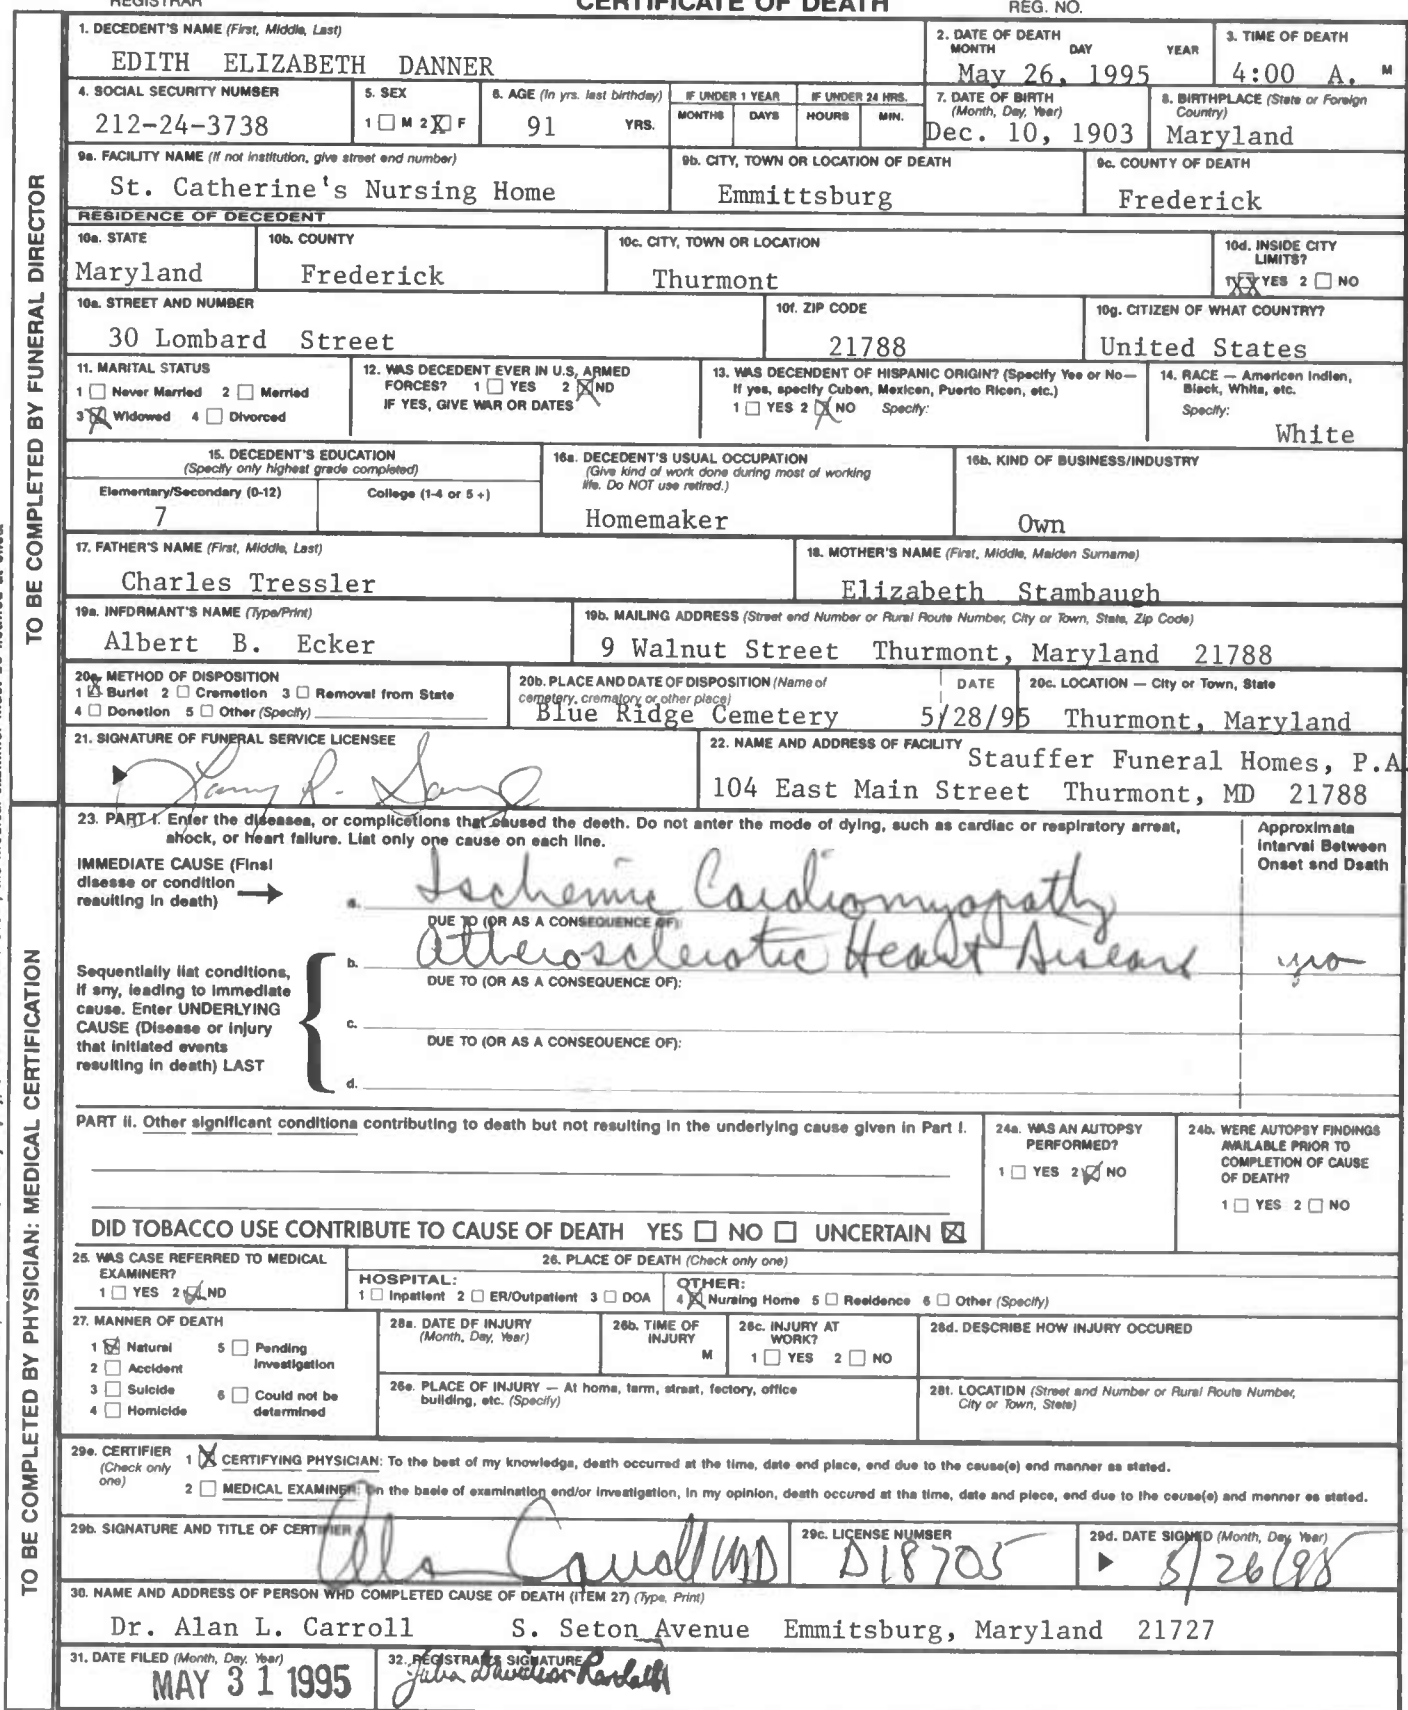 REGISTRAR CERTIFICATE OF DEATH REG. NO.
TO BE COMPLETED BY FUNERAL DIRECTOR
1. DECEDENT'S NAME (First, Middle, Last)
EDITH ELIZABETH DANNER
2. DATE OF DEATH
MONTH DAY YEAR
May 26, 1995
3. TIME OF DEATH
4:00 A. M
4. SOCIAL SECURITY NUMBER
212-24-3738
5. SEX
1 ☐ M 2 ☒ F
6. AGE (In yrs. last birthday)
91 YRS.
IF UNDER 1 YEAR
MONTHS DAYS
IF UNDER 24 HRS.
HOURS MIN.
7. DATE OF BIRTH
(Month, Day, Year)
Dec. 10, 1903
8. BIRTHPLACE (State or Foreign
Country)
Maryland
9a. FACILITY NAME (If not institution, give street end number)
St. Catherine's Nursing Home
9b. CITY, TOWN OR LOCATION OF DEATH
Emmittsburg
9c. COUNTY OF DEATH
Frederick
RESIDENCE OF DECEDENT
10a. STATE
Maryland
10b. COUNTY
Frederick
10c. CITY, TOWN OR LOCATION
Thurmont
10d. INSIDE CITY
LIMITS?
1 ☒ YES 2 ☐ NO
10e. STREET AND NUMBER
30 Lombard Street
10f. ZIP CODE
21788
10g. CITIZEN OF WHAT COUNTRY?
United States
11. MARITAL STATUS
1 ☐ Never Married 2 ☐ Married
3 ☒ Widowed 4 ☐ Divorced
12. WAS DECEDENT EVER IN U.S, ARMED
FORCES? 1 ☐ YES 2 ☒ NO
IF YES, GIVE WAR OR DATES
13. WAS DECENDENT OF HISPANIC ORIGIN? (Specify Yes or No—
If yes, specify Cuben, Mexicen, Puerto Ricen, etc.)
1 ☐ YES 2 ☒ NO Specify:
14. RACE — Americen Indlen,
Bleck, White, etc.
Specify:
White
15. DECEDENT'S EDUCATION
(Specify only highest grade completed)
Elementary/Secondary (0-12)
7
College (1-4 or 5 +)
16a. DECEDENT'S USUAL OCCUPATION
(Give kind of work done during most of working
life. Do NOT use retired.)
Homemaker
16b. KIND OF BUSINESS/INDUSTRY
Own
17. FATHER'S NAME (First, Middle, Last)
Charles Tressler
18. MOTHER'S NAME (First, Middle, Maiden Surname)
Elizabeth Stambaugh
19a. INFORMANT'S NAME (Type/Print)
Albert B. Ecker
19b. MAILING ADDRESS (Street end Number or Rural Route Number, City or Town, State, Zip Code)
9 Walnut Street Thurmont, Maryland 21788
20a. METHOD OF DISPOSITION
1 ☒ Buriel 2 ☐ Cremetion 3 ☐ Removal from State
4 ☐ Donetion 5 ☐ Other (Specify)
20b. PLACE AND DATE OF DISPOSITION (Name of
cemetery, crematory or other place)
Blue Ridge Cemetery
DATE
5/28/95
20c. LOCATION — City or Town, State
Thurmont, Maryland
21. SIGNATURE OF FUNERAL SERVICE LICENSEE
22. NAME AND ADDRESS OF FACILITY
Stauffer Funeral Homes, P.A
104 East Main Street Thurmont, MD 21788
TO BE COMPLETED BY PHYSICIAN: MEDICAL CERTIFICATION
23. PART I. Enter the diseases, or complicetions that caused the deeth. Do not anter the mode of dying, such as cardiac or respiratory arreat,
ahock, or heart failure. Liat only one cause on each line.
Approximata
Interval Between
Onset snd Dsath
IMMEDIATE CAUSE (Final
disease or condition
reaulting in death)
a. Ischemic Cardiomyopathy
DUE TO (OR AS A CONSEQUENCE OF):
b. Atherosclerotic Heart Disease
yrs
DUE TO (OR AS A CONSEQUENCE OF):
c.
DUE TO (OR AS A CONSEQUENCE OF):
d.
Sequentially liat conditions,
if sny, leading to immediate
cause. Enter UNDERLYING
CAUSE (Disease or injury
that initiated events
resulting in death) LAST
PART II. Other significant conditiona contributing to death but not resulting in the underlying cause given in Part I.
24a. WAS AN AUTOPSY
PERFORMED?
1 ☐ YES 2 ☒ NO
24b. WERE AUTOPSY FINDINGS
AVAILABLE PRIOR TO
COMPLETION OF CAUSE
OF DEATH?
1 ☐ YES 2 ☐ NO
DID TOBACCO USE CONTRIBUTE TO CAUSE OF DEATH YES ☐ NO ☐ UNCERTAIN ☒
25. WAS CASE REFERRED TO MEDICAL
EXAMINER?
1 ☐ YES 2 ☒ NO
26. PLACE OF DEATH (Check only one)
HOSPITAL:
1 ☐ Inpatient 2 ☐ ER/Outpatient 3 ☐ DOA
OTHER:
4 ☒ Nursing Home 5 ☐ Residence 6 ☐ Other (Specify)
27. MANNER OF DEATH
1 ☒ Natural 5 ☐ Pending
Investigation
2 ☐ Accident
3 ☐ Suicide 6 ☐ Could not be
determined
4 ☐ Homicide
28a. DATE OF INJURY
(Month, Day, Year)
28b. TIME OF
INJURY
M
28c. INJURY AT
WORK?
1 ☐ YES 2 ☐ NO
28d. DESCRIBE HOW INJURY OCCURED
28e. PLACE OF INJURY — At home, farm, street, fectory, office
building, etc. (Specify)
28f. LOCATION (Street and Number or Rural Route Number,
City or Town, State)
29a. CERTIFIER
(Check only
one)
1 ☒ CERTIFYING PHYSICIAN: To the best of my knowledge, death occurred at the time, date end place, end due to the cause(e) end manner as stated.
2 ☐ MEDICAL EXAMINER: On the basle of examination end/or investigation, in my opinion, death occured at tha time, date and plece, end due to the ceuse(e) and menner es stated.
29b. SIGNATURE AND TITLE OF CERTIFIER
Alan Carroll MD
29c. LICENSE NUMBER
D18705
29d. DATE SIGNED (Month, Day, Year)
5/26/95
30. NAME AND ADDRESS OF PERSON WHO COMPLETED CAUSE OF DEATH (ITEM 27) (Type, Print)
Dr. Alan L. Carroll S. Seton Avenue Emmitsburg, Maryland 21727
31. DATE FILED (Month, Day, Year)
MAY 31 1995
32. REGISTRAR'S SIGNATURE